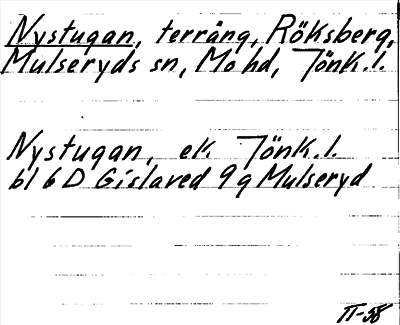 Nystugan, terräng, Röksberg,
Mulseryds sn, Mo hd, Jönk.l.
Nystugan, ek. Jönk.l.
bl 6 D Gislaved 9 g Mulseryd
II-58